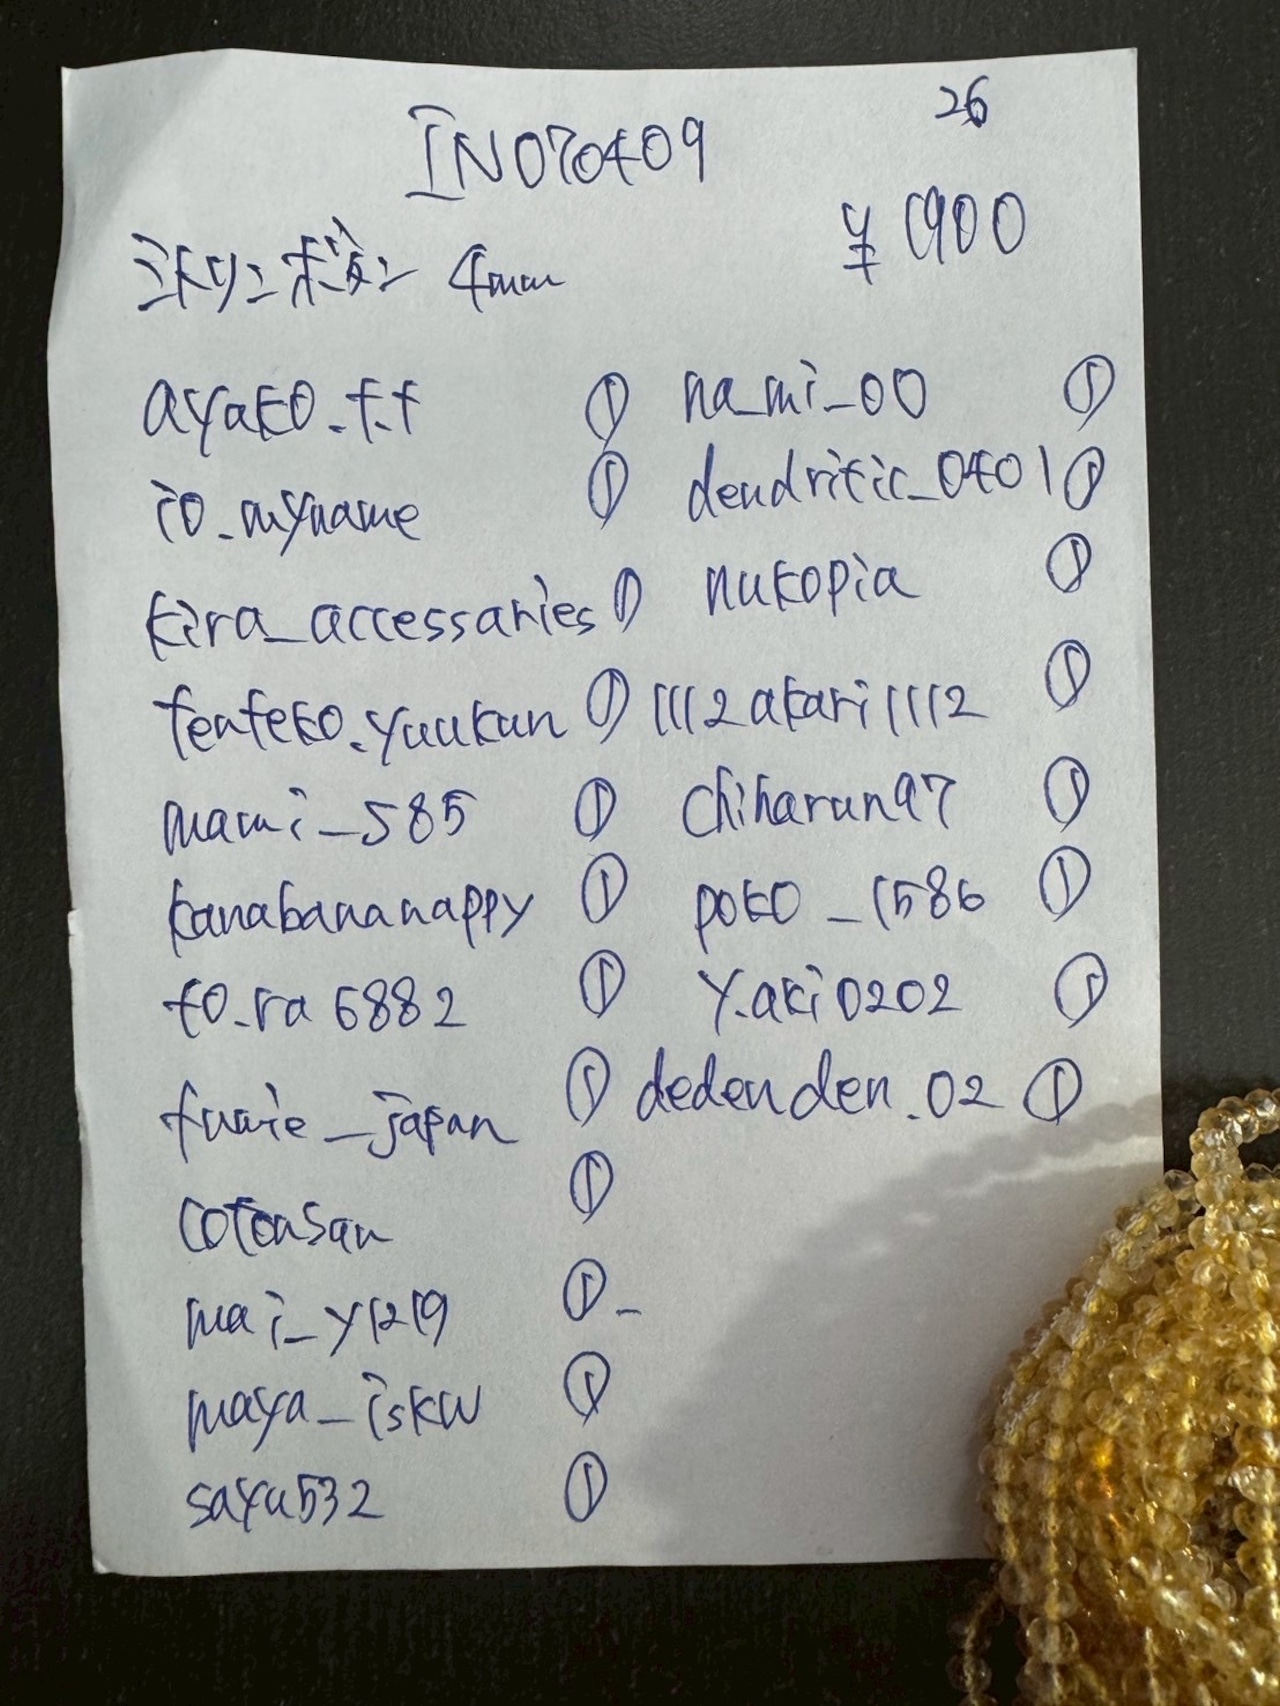 26
IN070409
¥1900
シトリンボタン 4mm
ayako.t.t ①
io_myname ①
kira_accessaries ①
tenteko.yuukun ①
mami_585 ①
kanabananappy ①
to_ra6882 ①
fumie_japan ①
cotonsan ①
mai_y1219 ①
maya_iskw ①
sayu532 ①
na_mi_00 ①
dendritic_0401 ①
nukopia ①
1112akari1112 ①
chiharun97 ①
poko_1586 ①
y.aki0202 ①
dedenden.02 ①